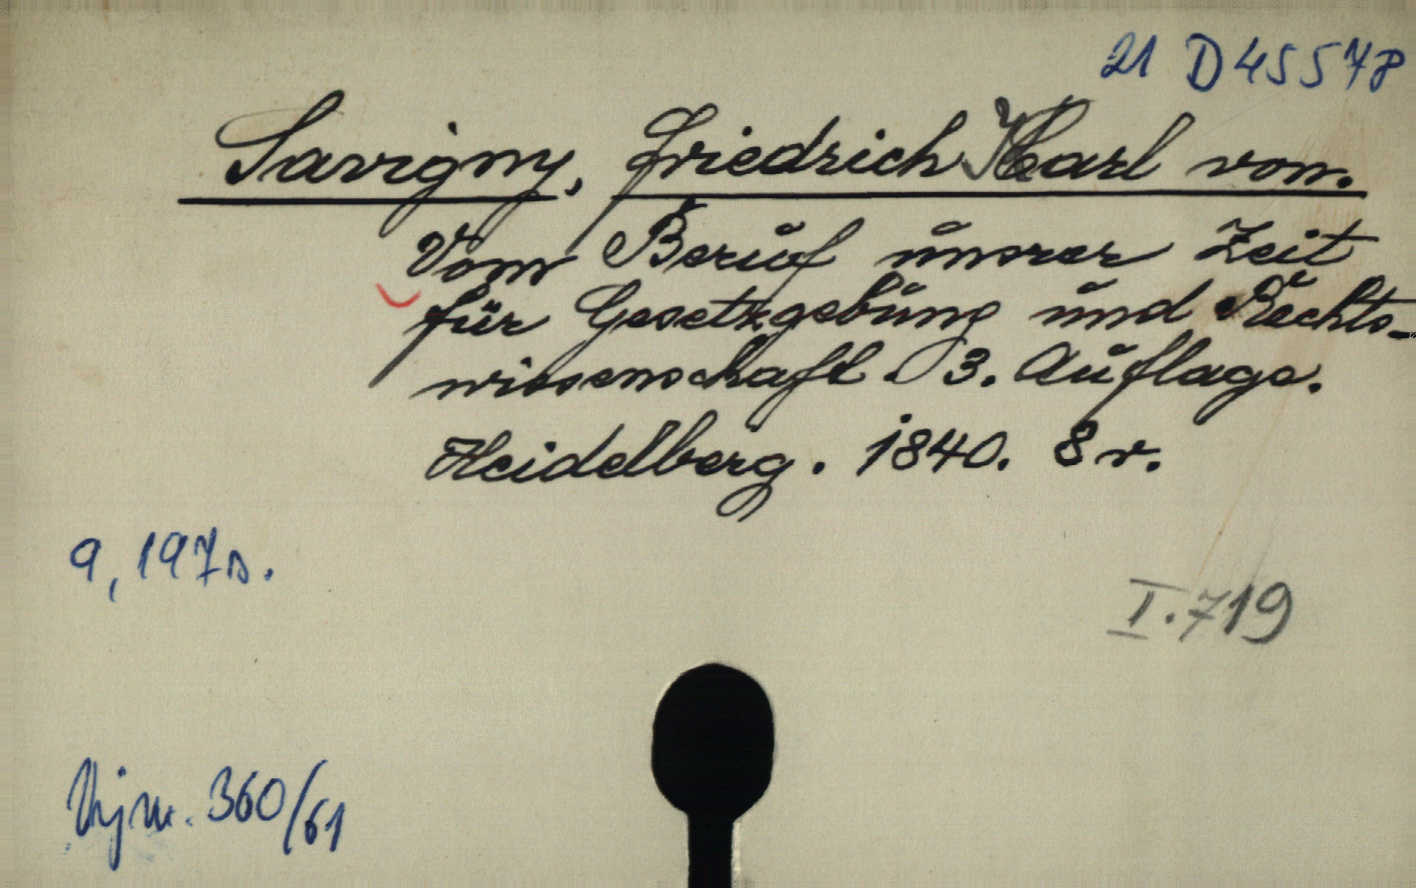 21 D 45578
Savigny, Friedrich Karl von.
Vom Beruf unsrer Zeit
für Gesetzgebung und Rechts-
wissenschaft. 3. Auflage.
Heidelberg. 1840. 8 v.
9, 197 s.
I.719
360/61